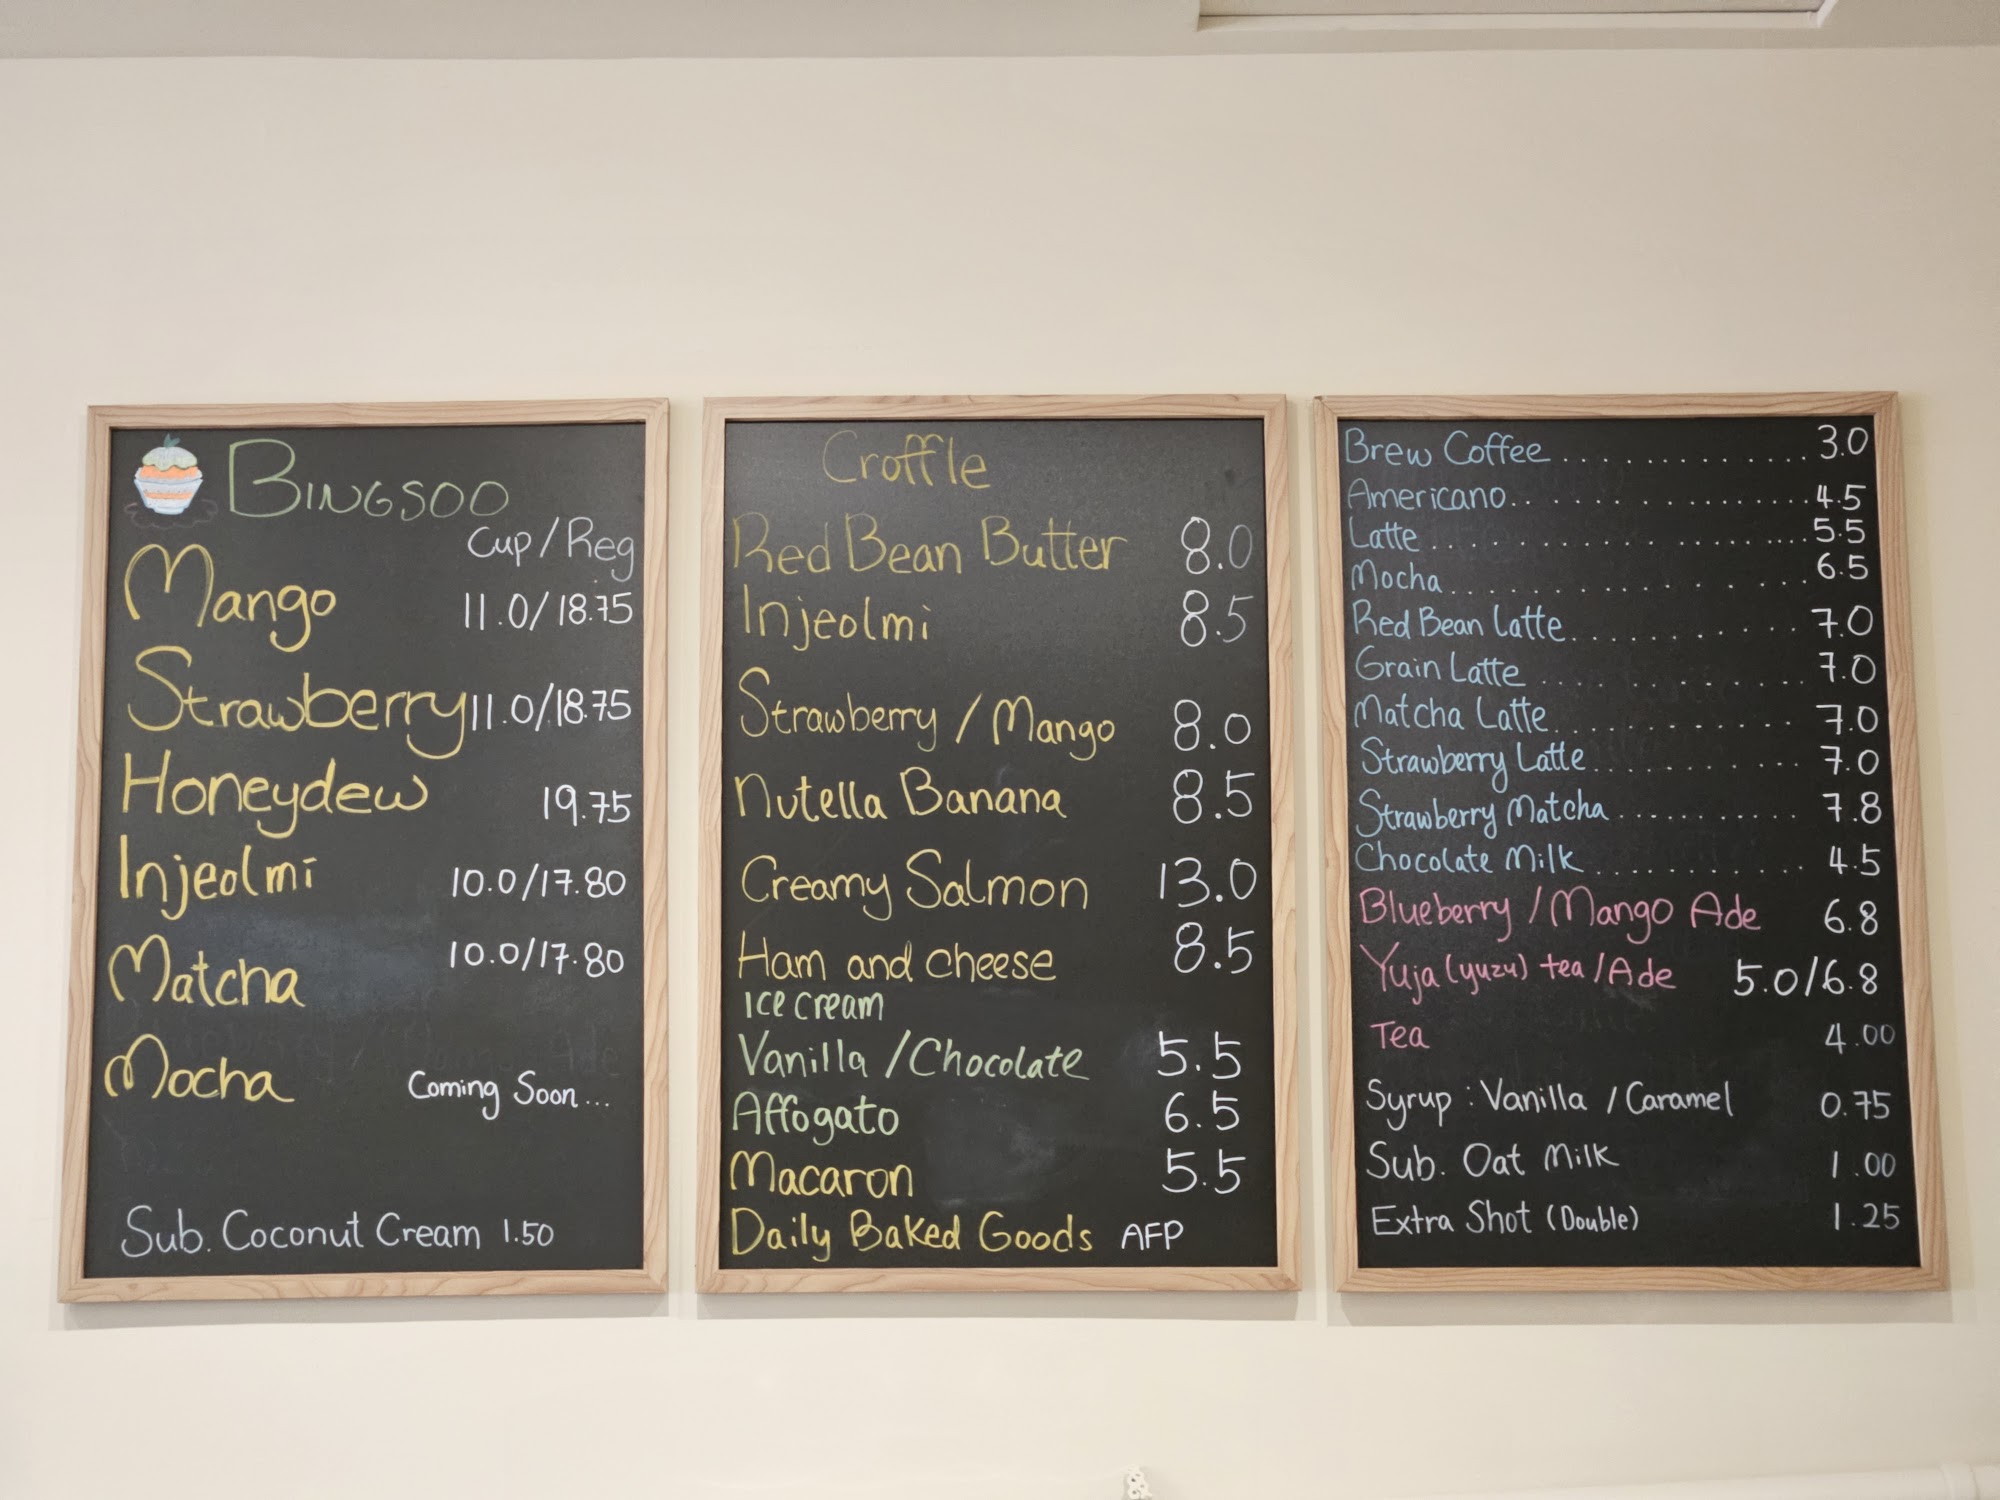 BINGSOO
Cup/Reg
Mango 11.0/18.75
Strawberry 11.0/18.75
Honeydew 19.75
Injeolmi 10.0/17.80
Matcha 10.0/17.80
Mocha Coming Soon...
Sub. Coconut Cream 1.50
Croffle
Red Bean Butter 8.0
Injeolmi 8.5
Strawberry / Mango 8.0
Nutella Banana 8.5
Creamy Salmon 13.0
Ham and cheese 8.5
Ice cream
Vanilla / Chocolate 5.5
Affogato 6.5
Macaron 5.5
Daily Baked Goods AFP
Brew Coffee 3.0
Americano 4.5
Latte 5.5
Mocha 6.5
Red Bean Latte 7.0
Grain Latte 7.0
Matcha Latte 7.0
Strawberry Latte 7.0
Strawberry Matcha 7.8
Chocolate Milk 4.5
Blueberry / Mango Ade 6.8
Yuja (yuzu) tea / Ade 5.0/6.8
Tea 4.00
Syrup : Vanilla / Caramel 0.75
Sub. Oat Milk 1.00
Extra Shot (Double) 1.25